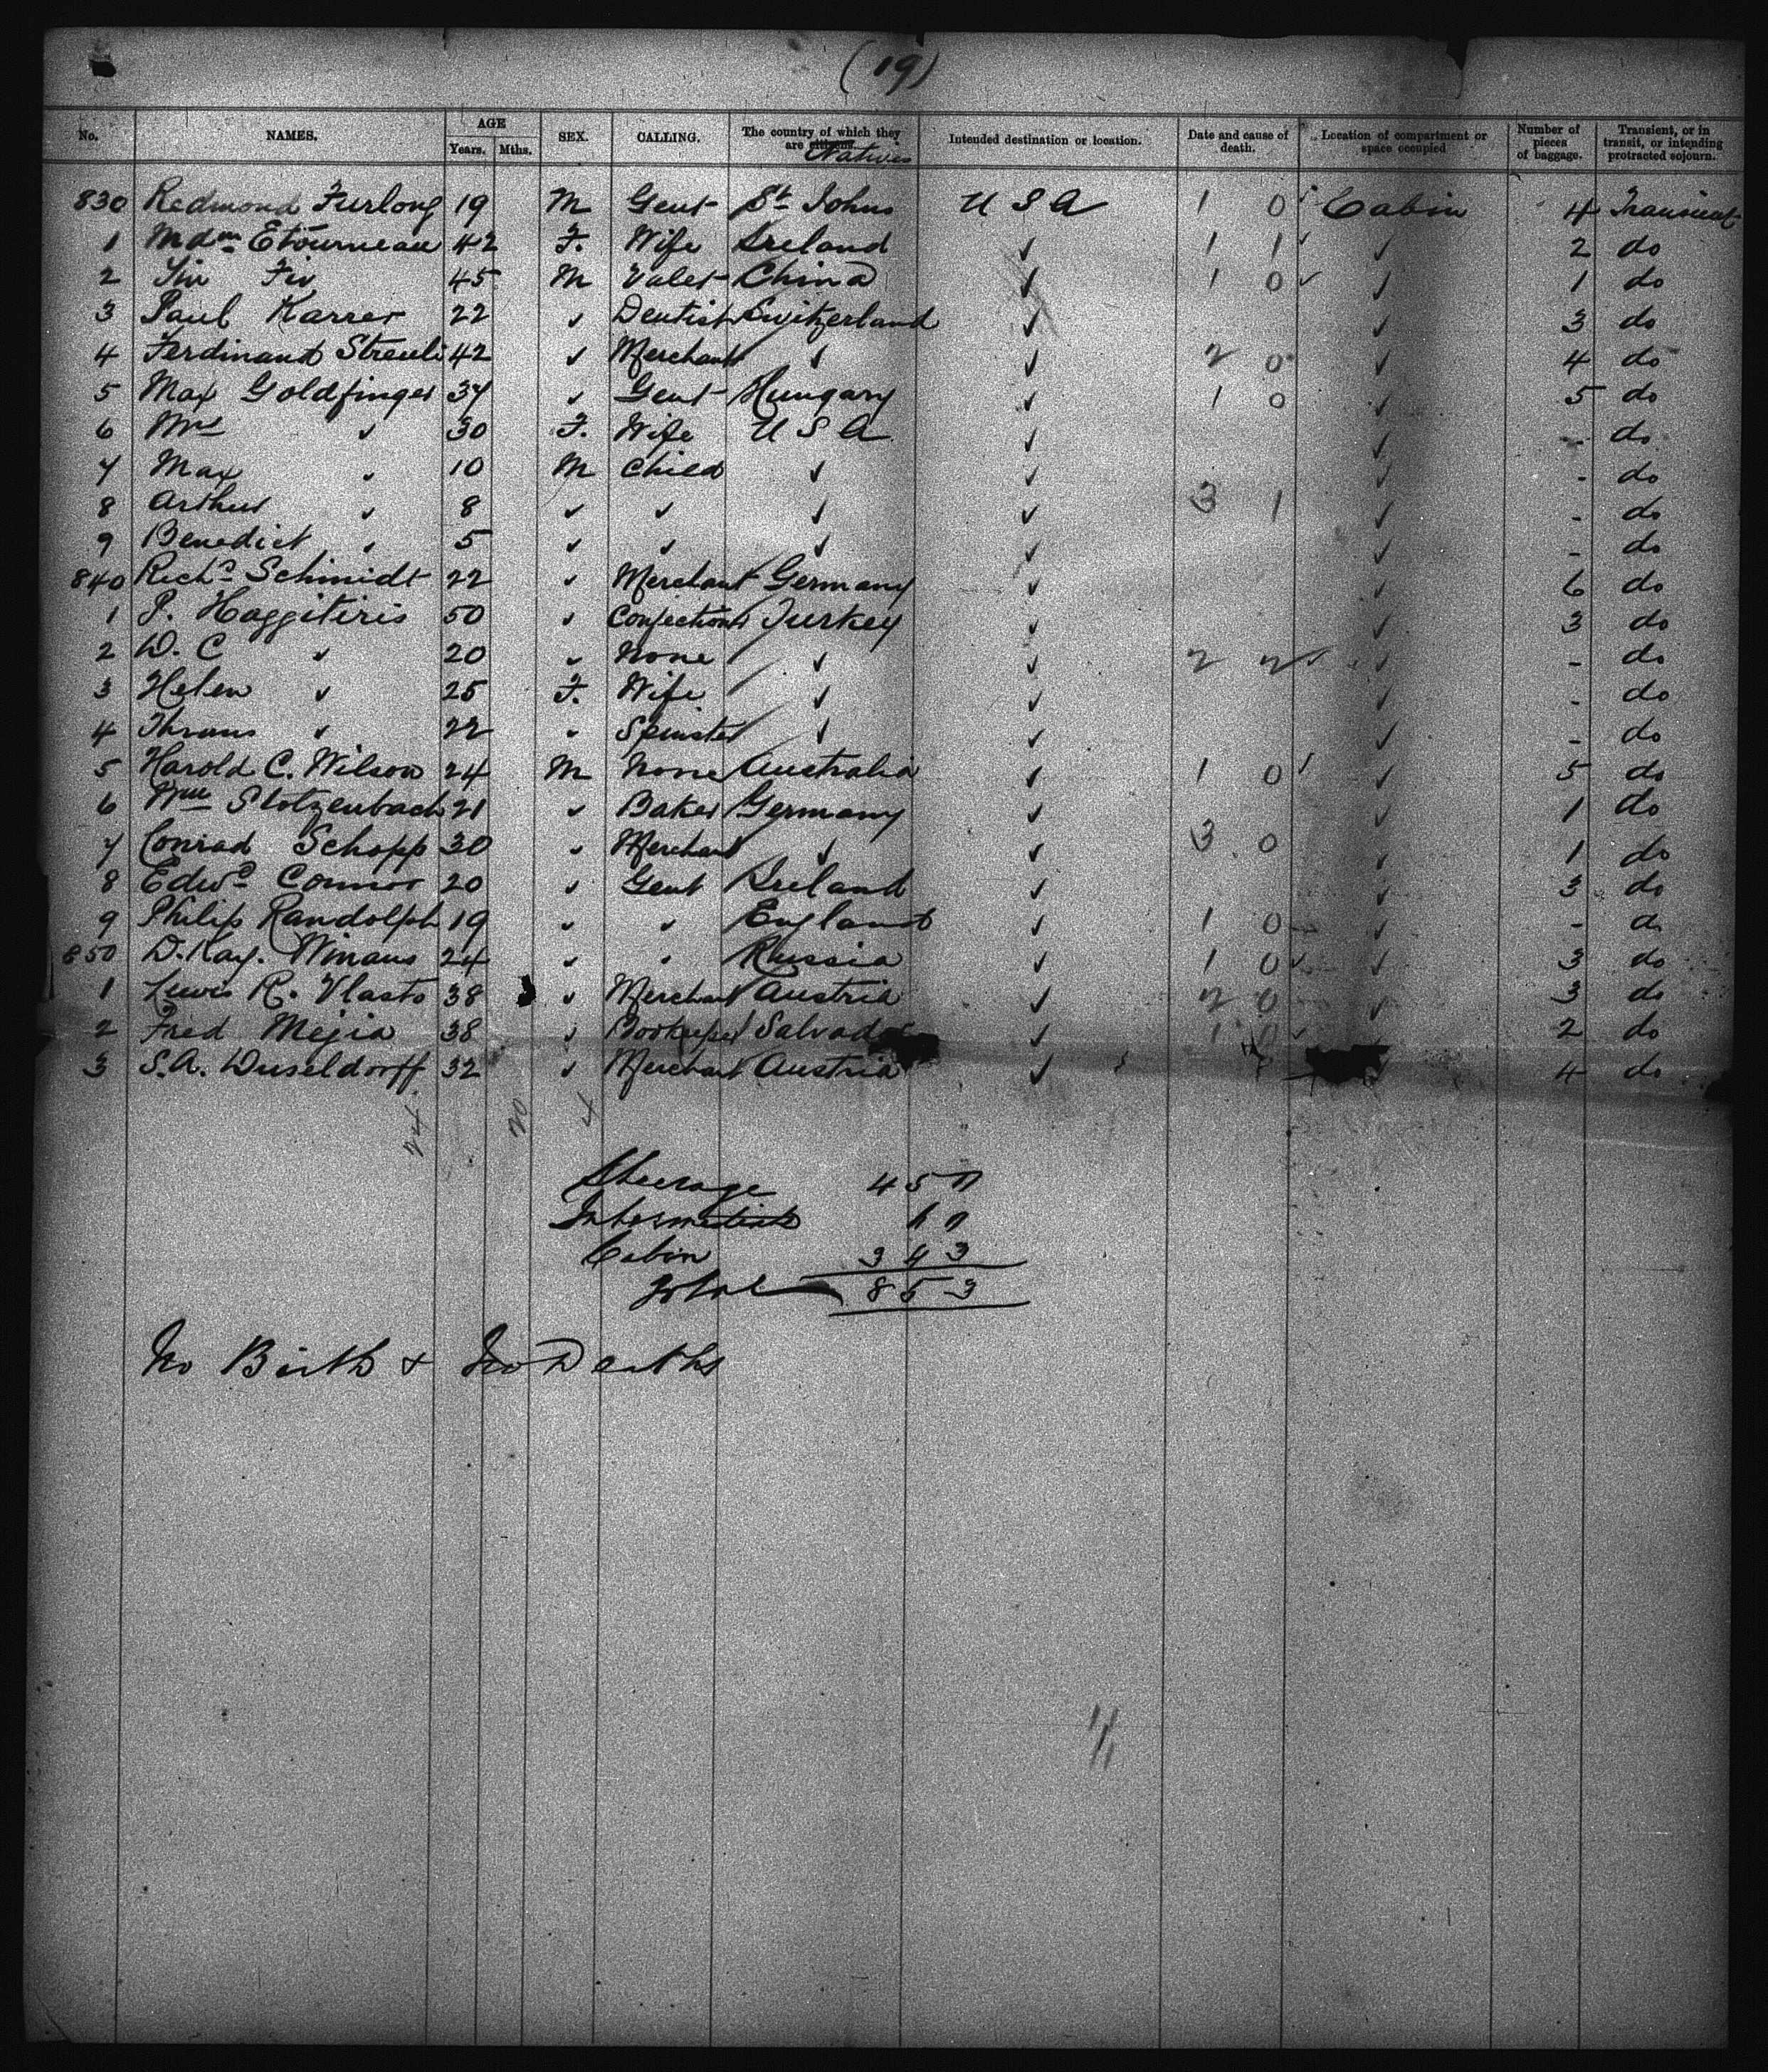 (19)
No. NAMES. AGE Years. Mths. SEX. CALLING. The country of which they are citizens. Natives Intended destination or location. Date and cause of death. Location of compartment or space occupied Number of pieces of baggage. Transient, or in transit, or intending protracted sojourn.
830 Redmond Furlong 19 M Gent St Johns U S A 1 0 Cabin 4 Transient
1 Mdm Etourneau 42 F. Wife Ireland ✓ 1 1 ✓ 2 do
2 45 M Valet China ✓ 1 0 ✓ ✓ 1 do
3 Paul Karrer 22 ✓ Dentist Switzerland ✓ ✓ 3 do
4 Ferdinand Streuli 42 ✓ Merchant ✓ ✓ 2 0 ✓ 4 do
5 Max Goldfinger 34 ✓ Gent Hungary ✓ 1 0 ✓ 5 do
6 Mrs ✓ 30 F. Wife U S A ✓ ✓ - do
7 Max ✓ 10 M Child ✓ ✓ ✓ - do
8 Arthur ✓ 8 ✓ ✓ ✓ ✓ 3 1 ✓ - do
9 Benedict ✓ 5 ✓ ✓ ✓ ✓ ✓ - do
840 Richd Schmidt 22 ✓ Merchant Germany ✓ ✓ 6 do
1 P. Haggitiris 50 ✓ Confection Turkey ✓ ✓ 3 do
2 D. C ✓ 20 ✓ None ✓ ✓ 2 2 ✓ ✓ - do
3 Helen ✓ 25 F. Wife ✓ ✓ ✓ - do
4 ✓ 22 ✓ Spinster ✓ ✓ ✓ - do
5 Harold C. Wilson 24 M None Australia ✓ 1 0 ✓ ✓ 5 do
6 Wm Stotzenbach 21 ✓ Baker Germany ✓ ✓ 1 do
7 Conrad Schopp 30 ✓ Merchant ✓ ✓ 3 0 ✓ 1 do
8 Edwd Connor 20 ✓ Gent Ireland ✓ ✓ 3 do
9 Philip Randolph 19 ✓ ✓ England ✓ 1 0 ✓ - do
850 D. Kay. Winans 24 ✓ ✓ Russia ✓ 1 0 ✓ ✓ 3 do
1 Lewis R. Vlasto 38 ✓ Merchant Austria ✓ 2 0 ✓ 3 do
2 Fred Mejia 38 ✓ Bookeeper Salvador ✓ 1 0 ✓ 2 do
3 S.A. Duseldorff 32 ✓ Merchant Austria ✓ ✓ 4 do
24 20 4
Steerage 450
Intermediate 60
Cabin 343
Total 853
No Birth & No Deaths